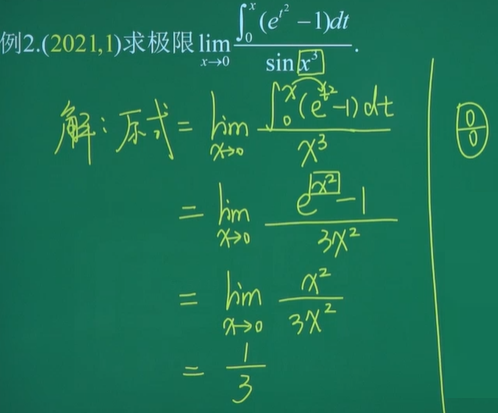 例2.(2021,1)求极限 lim x→0 ∫₀ˣ(e^{t²}−1)dt / sin x³ .
解:原式= lim x→0 ∫₀ˣ(e^{t²}−1)dt / x³
0/0
= lim x→0 e^{x²}−1 / 3x²
= lim x→0 x² / 3x²
= 1/3